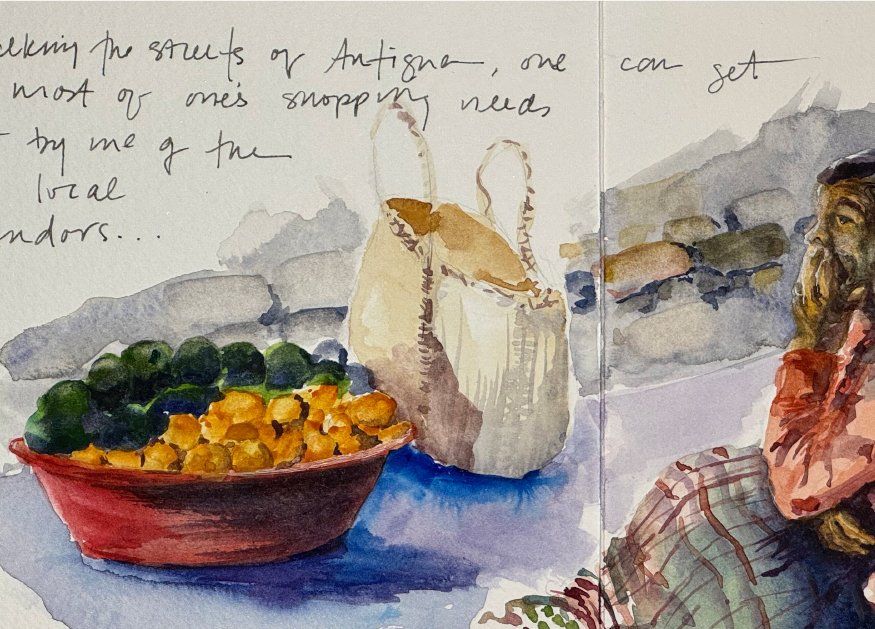 alking the streets of Antigua, one can get
most of one's shopping needs
t by one of the
local
ndors...